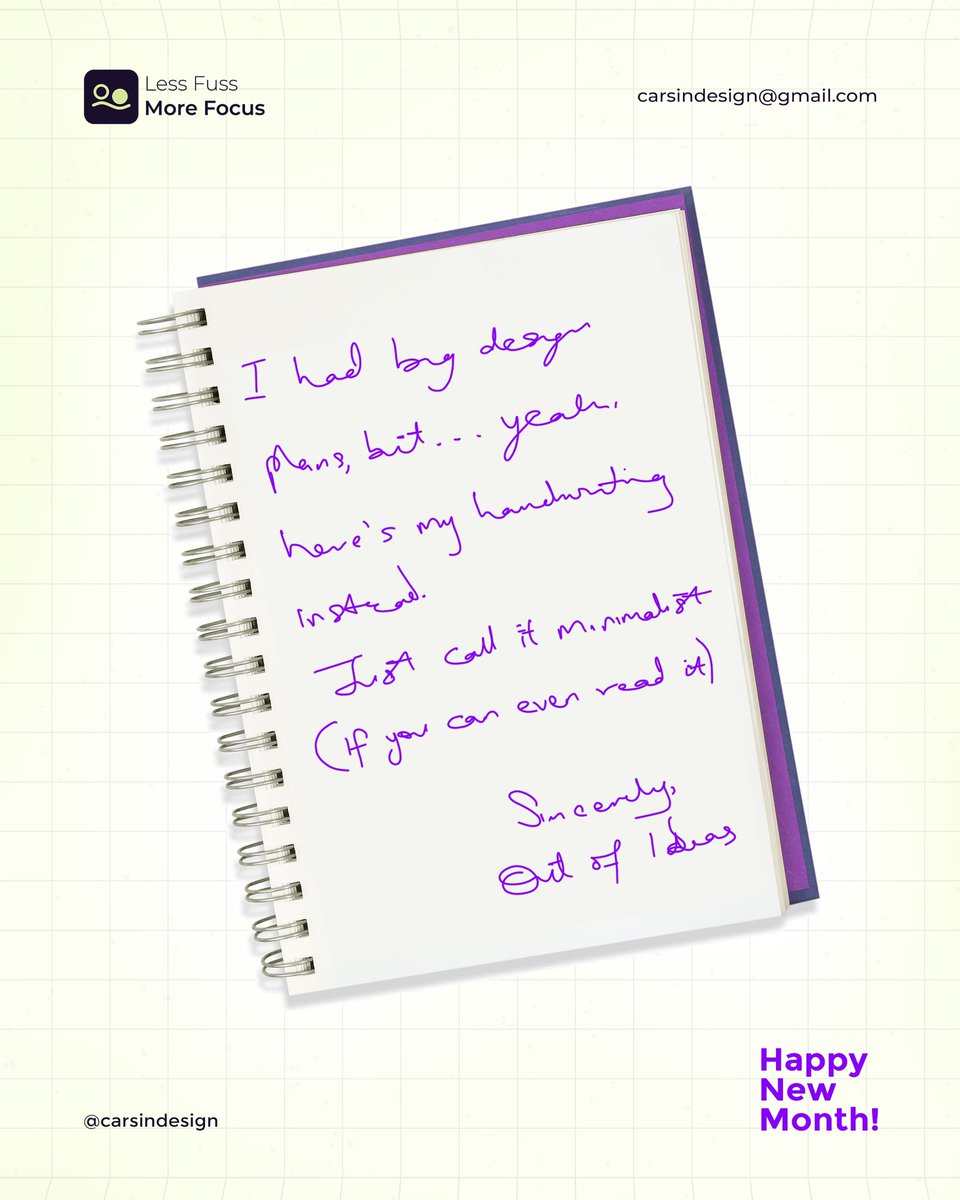 Less Fuss
More Focus
carsindesign@gmail.com
I had big design
plans, but... yeah,
here's my handwriting
instead.
Just call it minimalist
(If you can even read it)
Sincerely,
Out of Ideas
@carsindesign
Happy
New
Month!